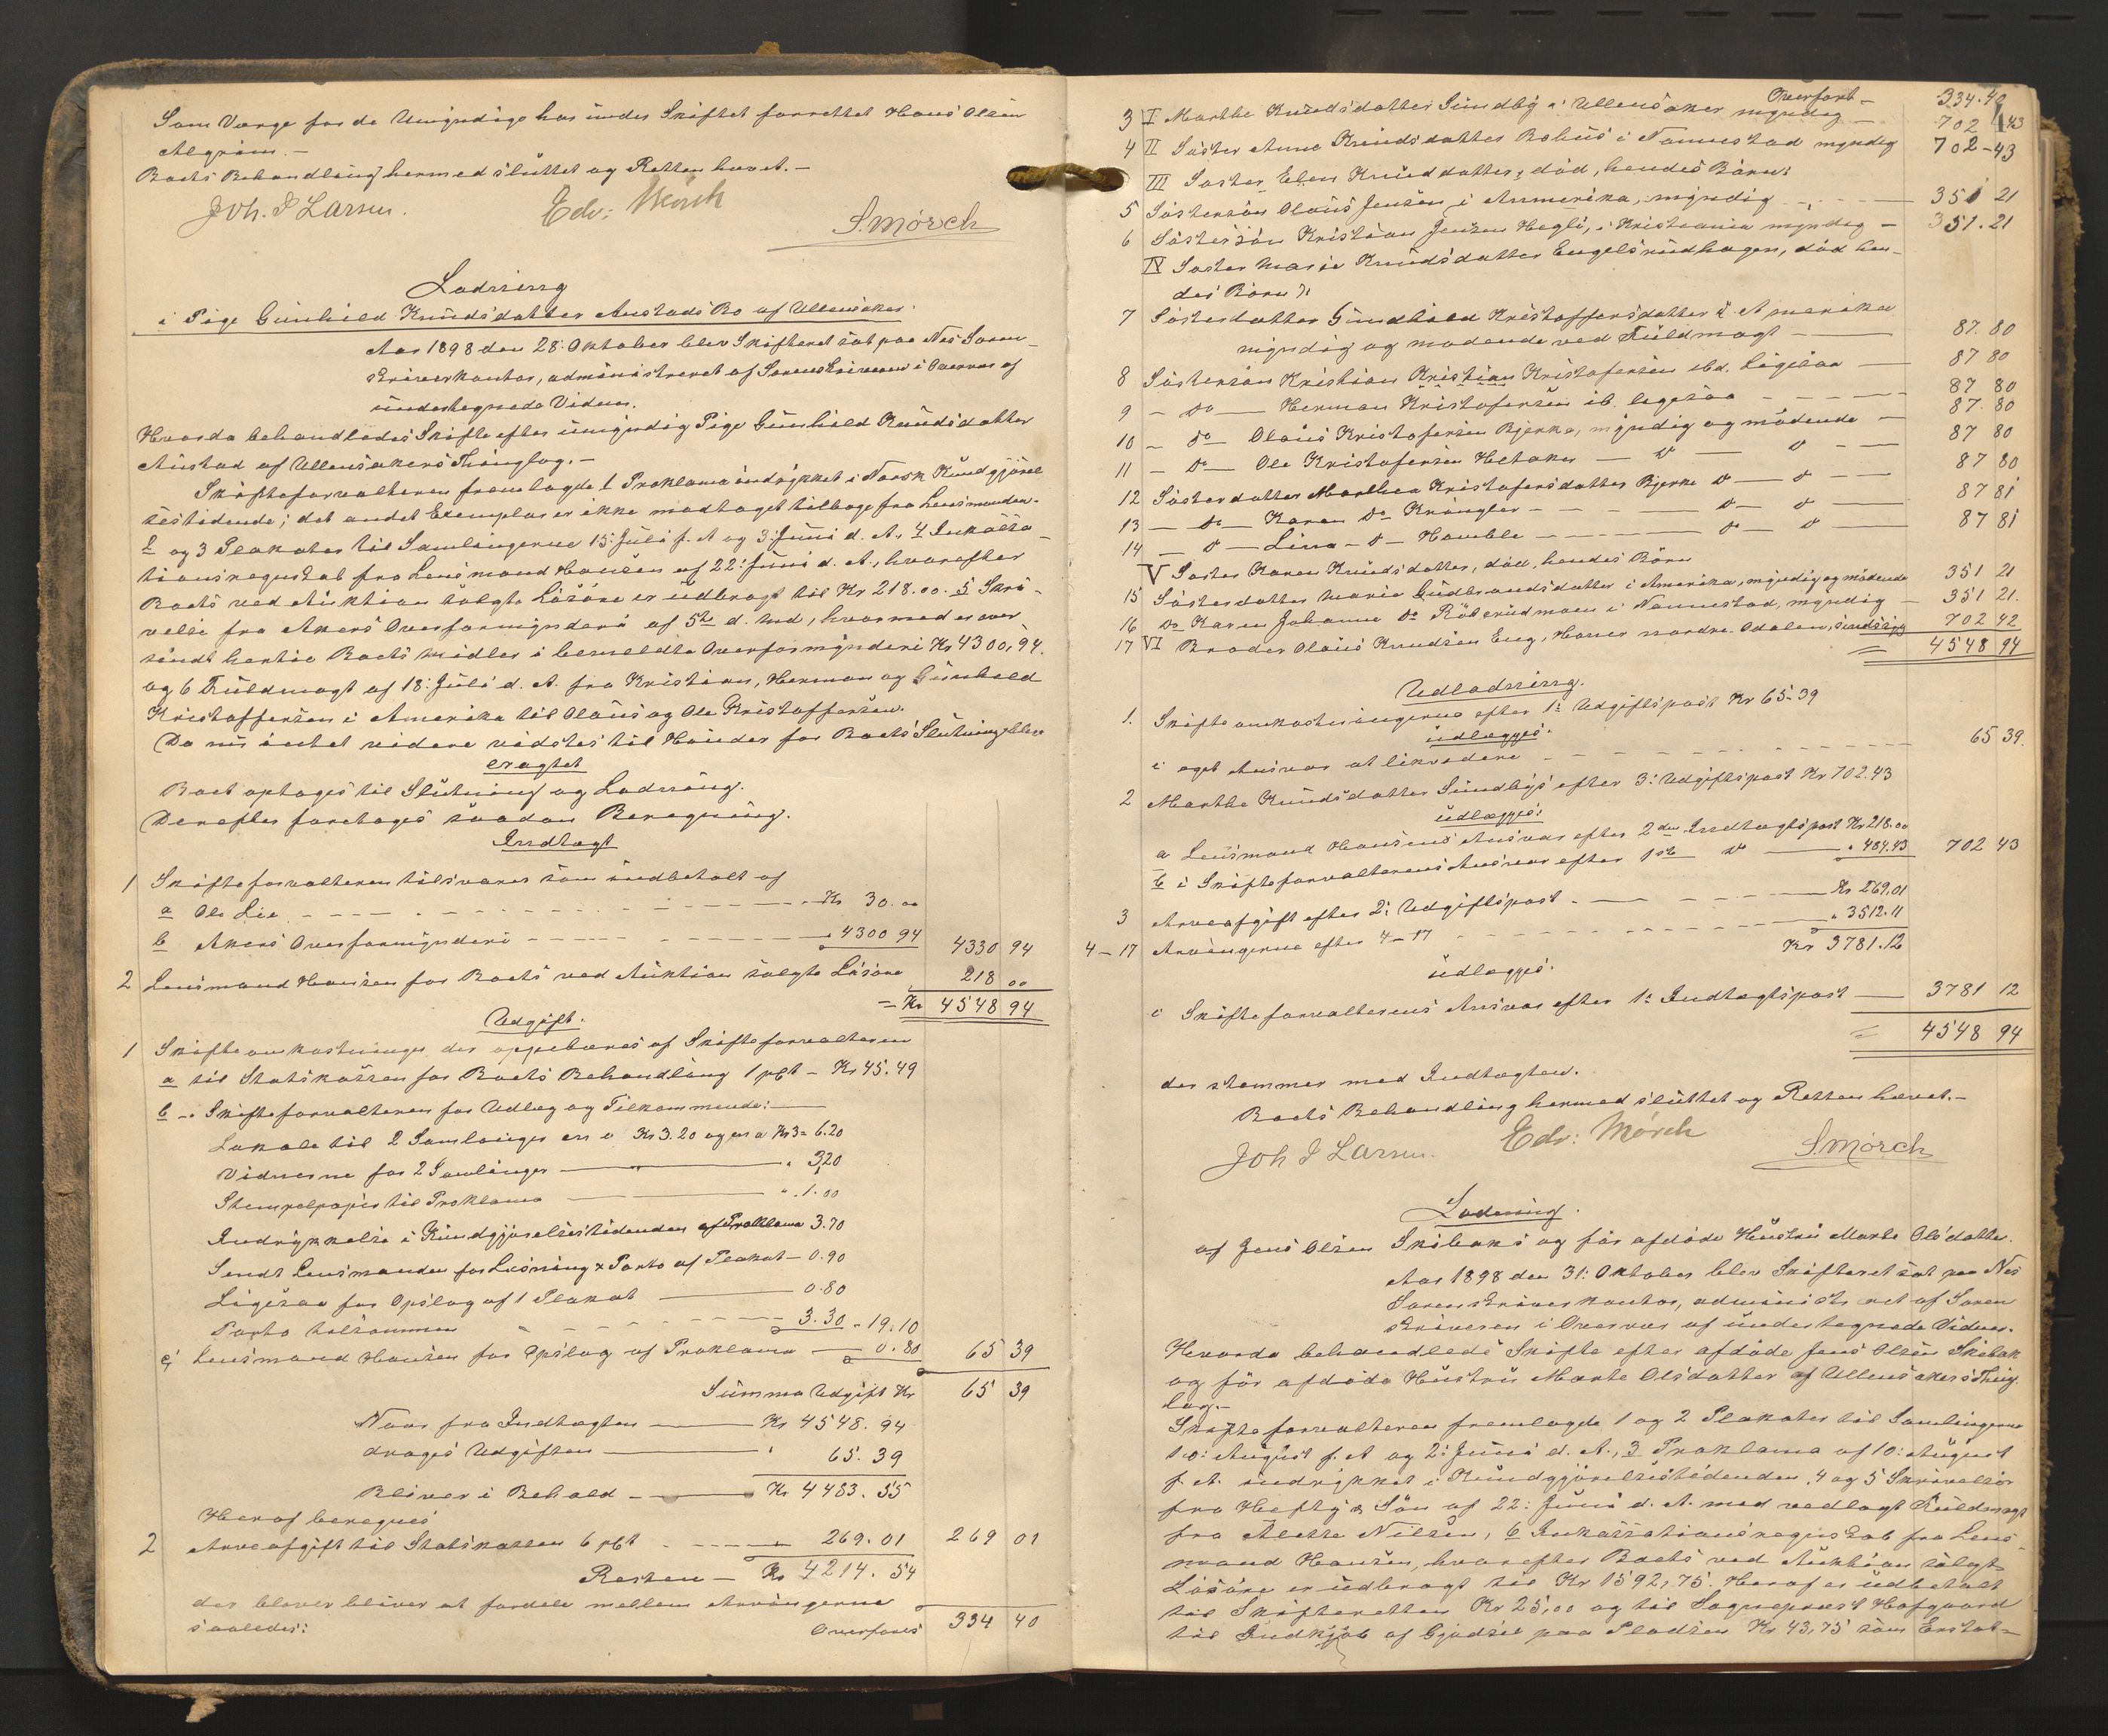 Som Værge for de Umyndige har under Skiftet forrettet Hans Olsen
Algrim. —
Boets Behandling hermed sluttet og Retten hævet. —
Joh. I Larsen.
Edv: Mørch
S. Mørch
Lodning
i Pige Gunhild Knudsdatter Austads Bo af Ullensaker.
Aar 1898 den 28: Oktober blev Skifteret sat paa Nes Soren-
skriverkontor, administreret af Sorenskriveren i Overvær af
undertegnede Vidner.
Hvorda behandledes Skifte efter umyndig Pige Gunhild Knudsdatter
Austad af Ullensakers Thinglag. —
Skifteforvalteren fremlagde 1 Proklama indrykket i Norsk Kundgjørel-
sestidende; det andet Exemplar er ikke modtaget tilbage fra Lensmanden.
2 og 3 Plakater til Samlingerne 15: Juli f. A og 3: Juni d. A., 4 Inkassa-
tionsregnskab fra Lensmand Hansen af 22: Juni d. A., hvorefter
Boets ved Auktion solgte Løsøre er udbragt til Kr 218.00. 5 Skri-
velse fra Akers Overformynderi af 5te d. Md, hvormed er over
sendt hertil Boets Midler i bemeldte Overformynderi Kr 4300,94.
og 6 Fuldmagt af 18: Juli d. A. fra Kristian, Herman og Gunhild
Kristoffersen i Amerika til Olaus og Ole Kristoffersen.
Da nu intet videre vidstes til Hinder for Boets Slutning blev
eragtet
Boet optages til Slutning og Lodning.
Derefter foretages saadan Beregning.
Indtægt
1 Skifteforvalteren tilsvarer som indbetalt af
a Ole Lie - - - Kr 30.00
b Akers Overformynderi - - - " 4300 94 4330 94
2 Lensmand Hansen for Boets ved Auktion solgte Løsøre 218 00
= Kr 4548 94
Udgift.
1 Skifteomkostninger der oppebæres af Skifteforvalteren
a til Statskassen for Boets Behandling 1 pCt - Kr 45.49
b -" Skifteforvalteren for Udlæg og Tilkommende: —
Lokale til 2 Samlinger en a Kr 3.20 og en a Kr 3 = 6.20
Vidnerne for 2 Samlinger — " — " 3,20
Stempelpapir til Proklama — ". 1.00
Indrykkelse i Kundgjørelsestidenden af Proklama 3.70
Sendt Lensmanden for Læsning & Porto af Plakat - 0.90
Ligesaa for Opslag af 1 Plakat — 0.80
Porto tilsammen - - - 3.30 - 19.10
c, Lensmand Hansen for Opslag af Proklama — 0.80 65 39
Summa Udgift Kr 65 39
Naar fra Indtægten — Kr 4548. 94
drages Udgiften — " 65. 39
Bliver i Behold - — Kr 4483. 55
Heraf beregnes
2 Arveafgift til Statskassen 6 pCt - - - 269. 01 269 01
Resten — Kr 4214. 54
der bliver at fordele mellem Arvingerne
saaledes: Overføres 334 40
Overført - 334.40
3 I Marthe Knudsdatter Sundby i Ullensaker myndig — 702 43
4 II Søster Anne Knudsdatter Bohus i Nannestad myndig 702-43
III Søster Elen Knudsdatter, død, hendes Børn:
5 Søstersøn Olaus Jensen i Amerika, myndig - - — 351 21
6 Søstersøn Kristian Jensen Hegli, i Kristiania myndig — 351.21
IV Søster Marie Knudsdatter Engelsrudhagen, død hen-
des Børn:
7 Søsterdatter Gundhild Kristoffersdatter i Amerika
myndig og mødende ved Fuldmagt — 87. 80
8 Søstersøn Kristian Kristian Kristofersen ibd. Ligesaa — 87 80
9 - Do — Herman Kristofersen ib. ligesaa - - - 87 80
10 - Do - Olaus Kristofersen Bjerke, myndig og mødende — 87. 80
11 - Do - Ole Kristofersen Hetaker — Do — Do — 87 80
12 Søsterdatter Marthea Kristofersdatter Bjerke Do — Do — 87 80
13 — Do — Karen Do Krangler - - - Do - Do — 87 81
14 — Do — Lina - Do - Homble - - - Do - Do — 87 81
V Søster Karen Knudsdatter, død, hendes Børn
15 Søsterdatter Marie Gudbrandsdatter i Amerika, myndig og mødende 351 21
16 Do Karen Johanne Do Røterudmoen i Nannestad, myndig — 351 21.
17 VI Broder Olaus Knudsen Eng, Honer nordre Odalen, sindssyg 702 42
= 4548 94
Udlodning.
1. Skifteomkostningerne efter 1: Udgiftspost Kr 65.39
udlægges:
i eget Ansvar at likvidere - - - 65 39.
2 Marthe Knudsdatter Sundbys efter 3: Udgiftspost Kr 702.43
udlægges:
a Lensmand Hansens Ansvar efter 2den Indtægtspost Kr 218.00
b i Skifteforvalterens Ansvar efter 1ste Do — " 484.43 702 43
3 Arveafgift efter 2: Udgiftspost - — - - - Kr 269,01
4-17 Arvingerne efter 4-17 - - - " 3512.11
Kr 3781.12
udlægges:
i Skifteforvalterens Ansvar efter 1: Indtægtspost — 3781 12
= 4548 94
der stemmer med Indtægten.
Boets Behandling hermed sluttet og Retten hævet. —
Joh I Larsen.
Edv: Mørch
S. Mørch
Lodning.
af Jens Olsen Skibaks og før afdøde Hustru Marte Olsdatter.
Aar 1898 den 31: Oktober blev Skifteret sat paa Nes
Sorenskriverkontor, administreret af Soren
skriveren i Overvær af undertegnede Vidner.
Hvorda behandledes Skifte efter afdøde Jens Olsen Skibak
og før afdøde Hustru Marte Olsdatter af Ullensakers Thing
lag. —
Skifteforvalteren fremlagde 1 og 2 Plakater til Samlingerne
10: August f. A og 2: Juni d. A., 3 Proklama af 10: August
f. A. indrykket i Kundgjørelsestidenden, 4 og 5 Skrivelser
fra Hefty & Søn af 22: Juni d. A. med vedlagt Fuldmagt
fra Alette Nilsen, 6 Inkassationsregnskab fra Lens
mand Hansen, hvorefter Boets ved Auktion solgte
Løsøre er udbragt til Kr 1592,75. Heraf er udbetalt
til Skifteretten Kr 25,00 og til Sogneprest Hofgaard
til Indkjøb af Gjødsel paa Pladsen Kr 43,75 som Erstat-